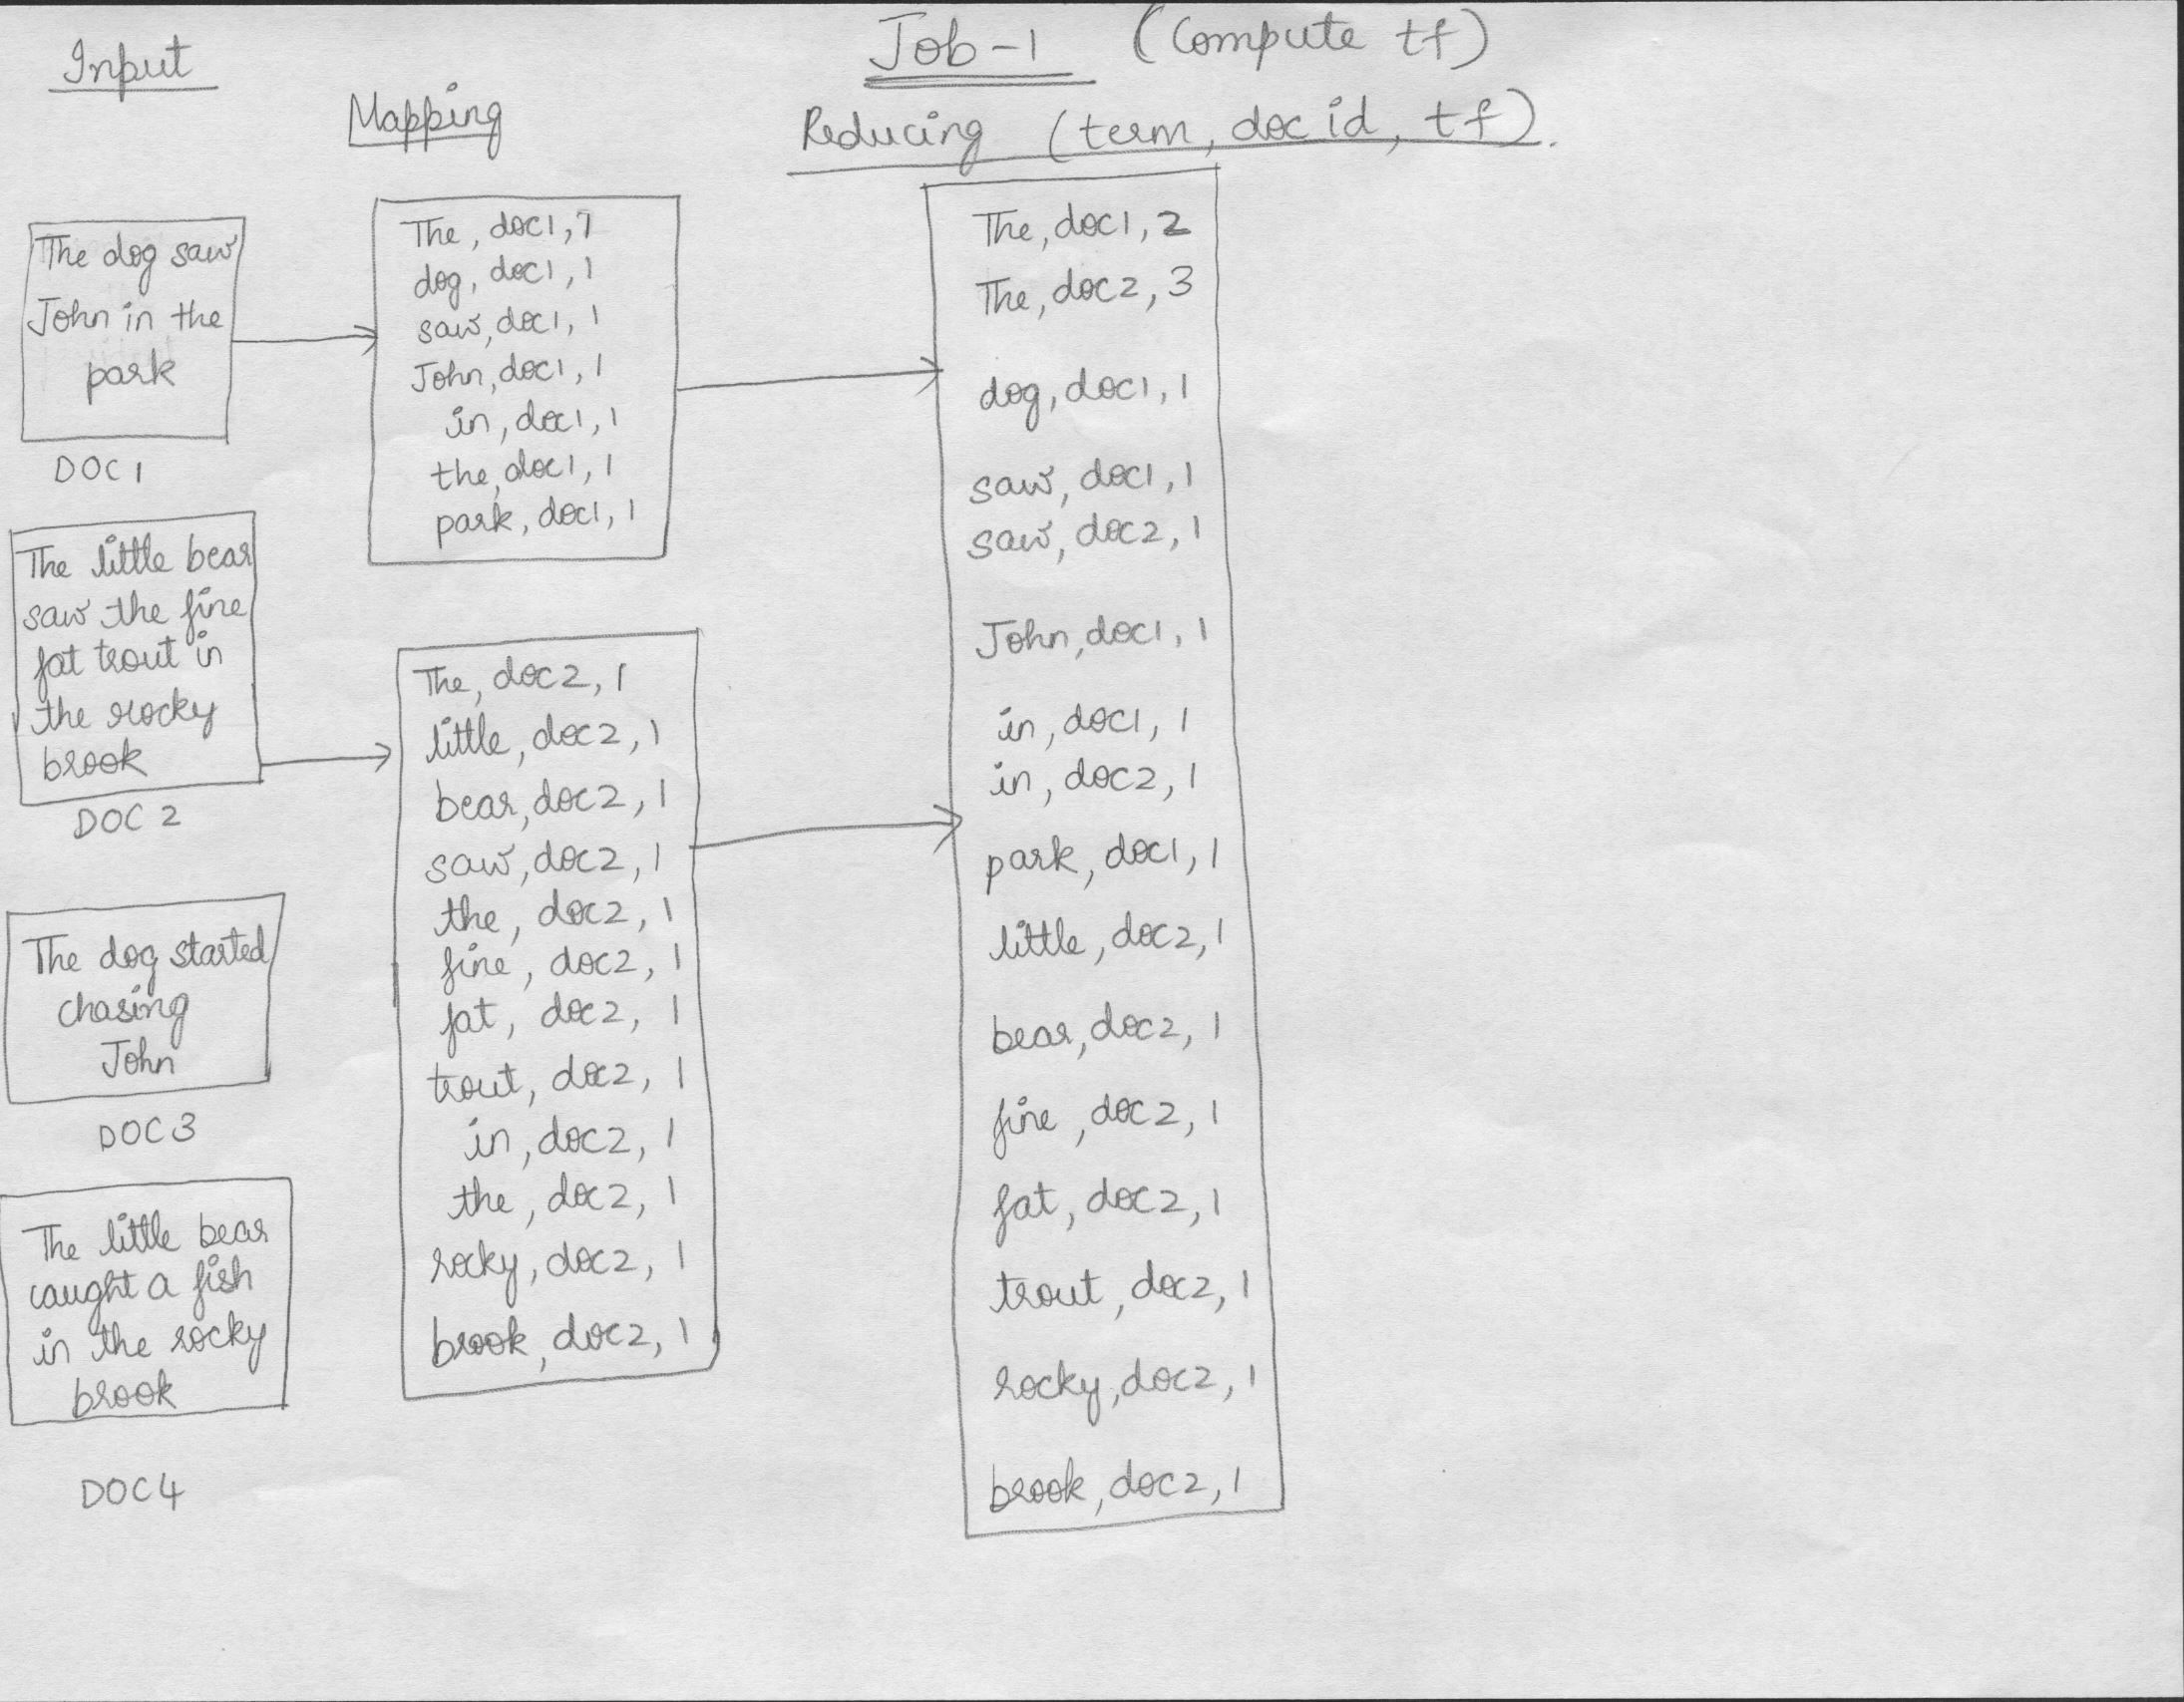 Input
Mapping
Job-1 (Compute tf)
Reducing (term, doc id, tf).
The dog saw
John in the
park
DOC1
The little bear
saw the fine
fat trout in
the rocky
brook
DOC 2
The dog started
chasing
John
DOC3
The little bear
caught a fish
in the rocky
brook
DOC4
The, doc1, 1
dog, doc1, 1
saw, doc1, 1
John, doc1, 1
in, doc1, 1
the, doc1, 1
park, doc1, 1
The, doc2, 1
little, doc2, 1
bear, doc2, 1
saw, doc2, 1
the, doc2, 1
fine, doc2, 1
fat, doc2, 1
trout, doc2, 1
in, doc2, 1
the, doc2, 1
rocky, doc2, 1
brook, doc2, 1
The, doc1, 2
The, doc2, 3
dog, doc1, 1
saw, doc1, 1
saw, doc2, 1
John, doc1, 1
in, doc1, 1
in, doc2, 1
park, doc1, 1
little, doc2, 1
bear, doc2, 1
fine, doc2, 1
fat, doc2, 1
trout, doc2, 1
rocky, doc2, 1
brook, doc2, 1